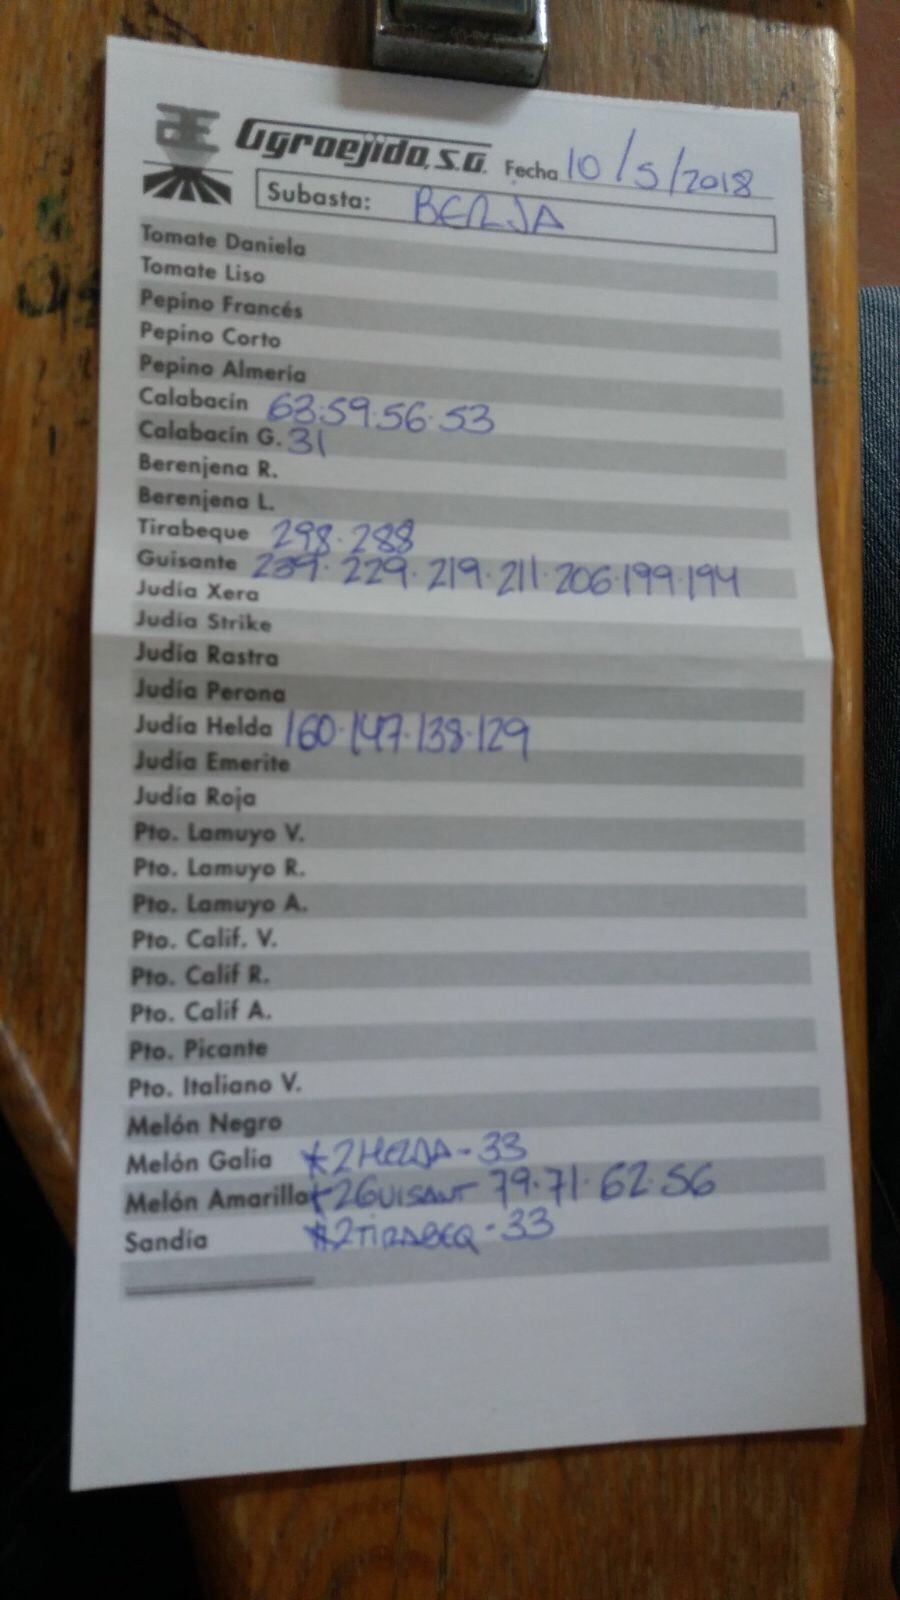 Agroejido, S.A. Fecha 10/5/2018
Subasta: BERJA
Tomate Daniela
Tomate Liso
Pepino Francés
Pepino Corto
Pepino Almería
Calabacín 63·59·56·53
Calabacín G. 31
Berenjena R.
Berenjena L.
Tirabeque 298·288
Guisante 239·229·219·211·206·199·194
Judía Xera
Judía Strike
Judía Rastra
Judía Perona
Judía Helda 160·147·138·129
Judía Emerite
Judía Roja
Pto. Lamuyo V.
Pto. Lamuyo R.
Pto. Lamuyo A.
Pto. Calif. V.
Pto. Calif R.
Pto. Calif A.
Pto. Picante
Pto. Italiano V.
Melón Negro
Melón Galia *2HELDA-33
Melón Amarillo *2GUISANT 79·71·62·56
Sandía *2TIRABEQ-33